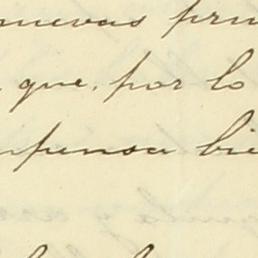 nuevas pru
que, por lo
mpensa bie